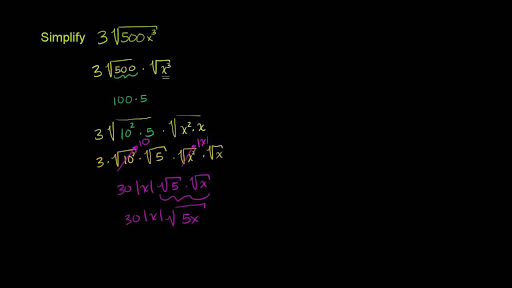 Simplify 3√500x³
3√500 · √x³
100·5
3√10²·5 · √x²·x
10 |x|
3·√10²·√5 · √x² · √x
30|x|·√5 · √x
30|x|√5x